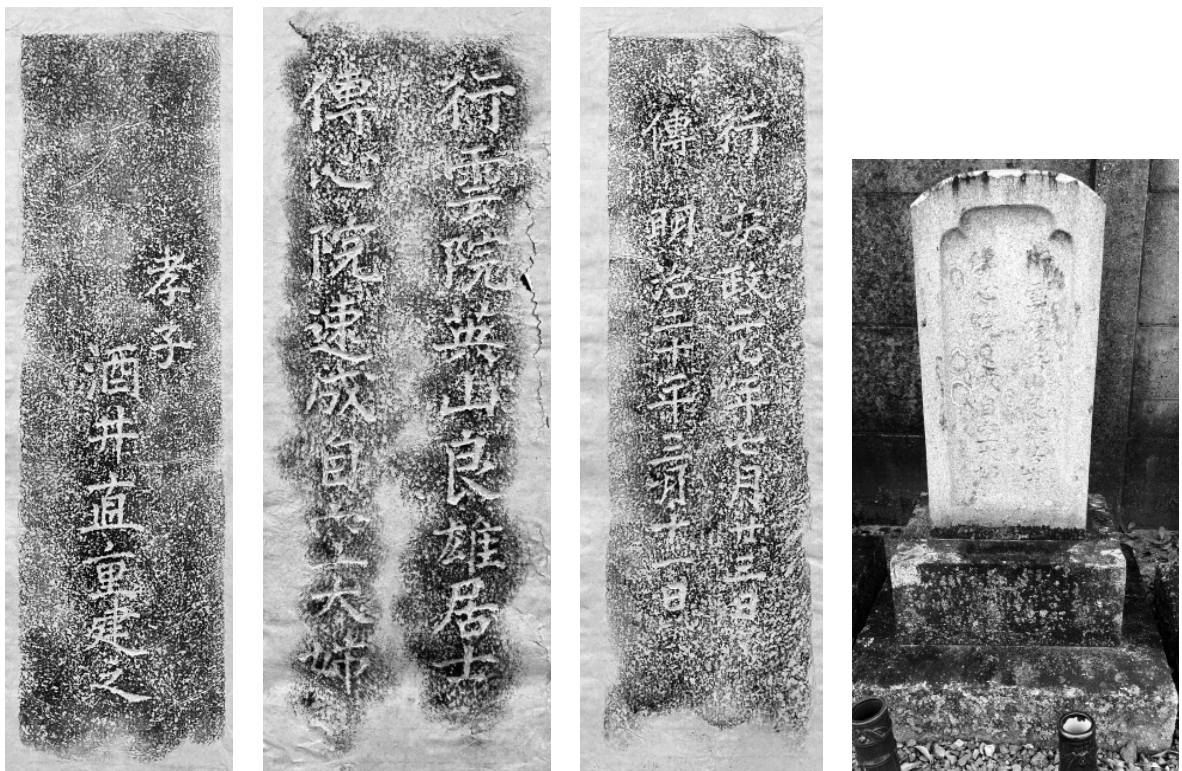 孝子
酒井直重建之
行雲院英山良雄居士
傳心院速成自空大姉
行 安政元年七月廿三日
傳 明治二十年三月十一日